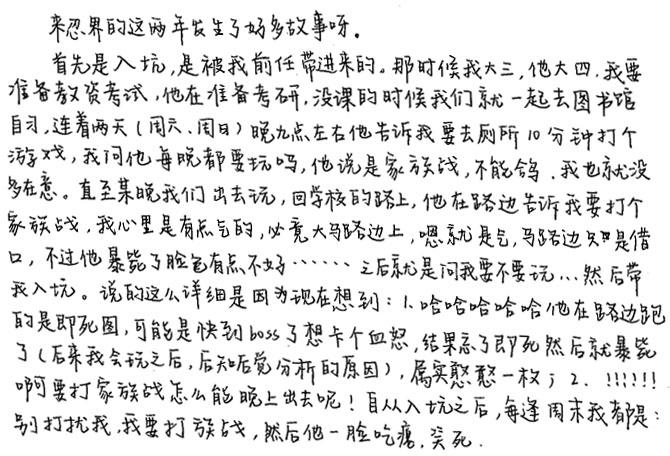 来忍界的这两年发生了好多故事呀。
首先是入坑,是被我前任带进来的。那时候我大三,他大四.我要
准备教资考试,他在准备考研,没课的时候我们就一起去图书馆
自习,连着两天(周六、周日)晚九点左右他告诉我要去厕所10分钟打个
游戏,我问他每晚都要玩吗,他说是家族战,不能鸽.我也就没
多在意。直至某晚我们出去玩,回学校的路上,他在路边告诉我要打个
家族战,我心里是有点气的,必竟大马路边上,嗯就是气,马路边只是借
口,不过他暴毙了脸色有点不好……之后就是问我要不要玩…然后带
我入坑。说的这么详细是因为现在想到:1.哈哈哈哈哈他在路边跑
的是即死图,可能是快到boss了想卡个血怒,结果忘了即死然后就暴毙
了(后来我会玩之后,后知后觉分析的原因),属实憨憨一枚;2.!!!!!!
啊可要打家族战怎么能晚上出去呢!自从入坑之后,每逢周末我都是:
别打扰我,我要打族战,然后他一脸吃瘪.笑死.